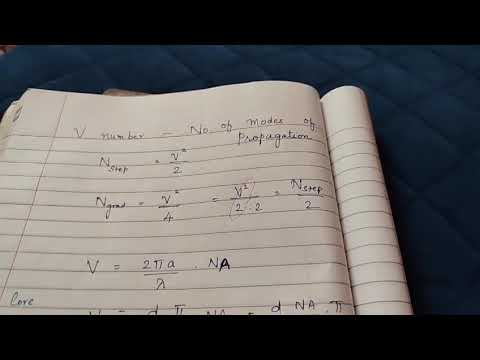 V number - No. of modes of
propagation
N_step = V²/2
N_grad = V²/4 = V²/2·2 = N_step/2
V = 2πa/λ · NA
Core